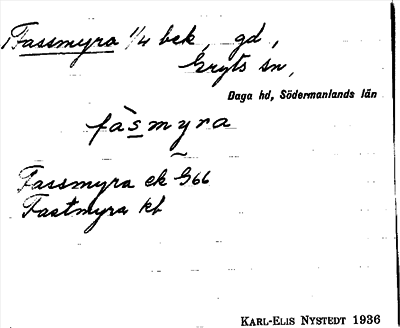 Fassmyra 1/4 bek, gd,
Gryts sn,
Daga hd, Södermanlands län
fàsmyra
Fassmyra ek G66
Fastmyra kb
KARL-ELIS NYSTEDT 1936